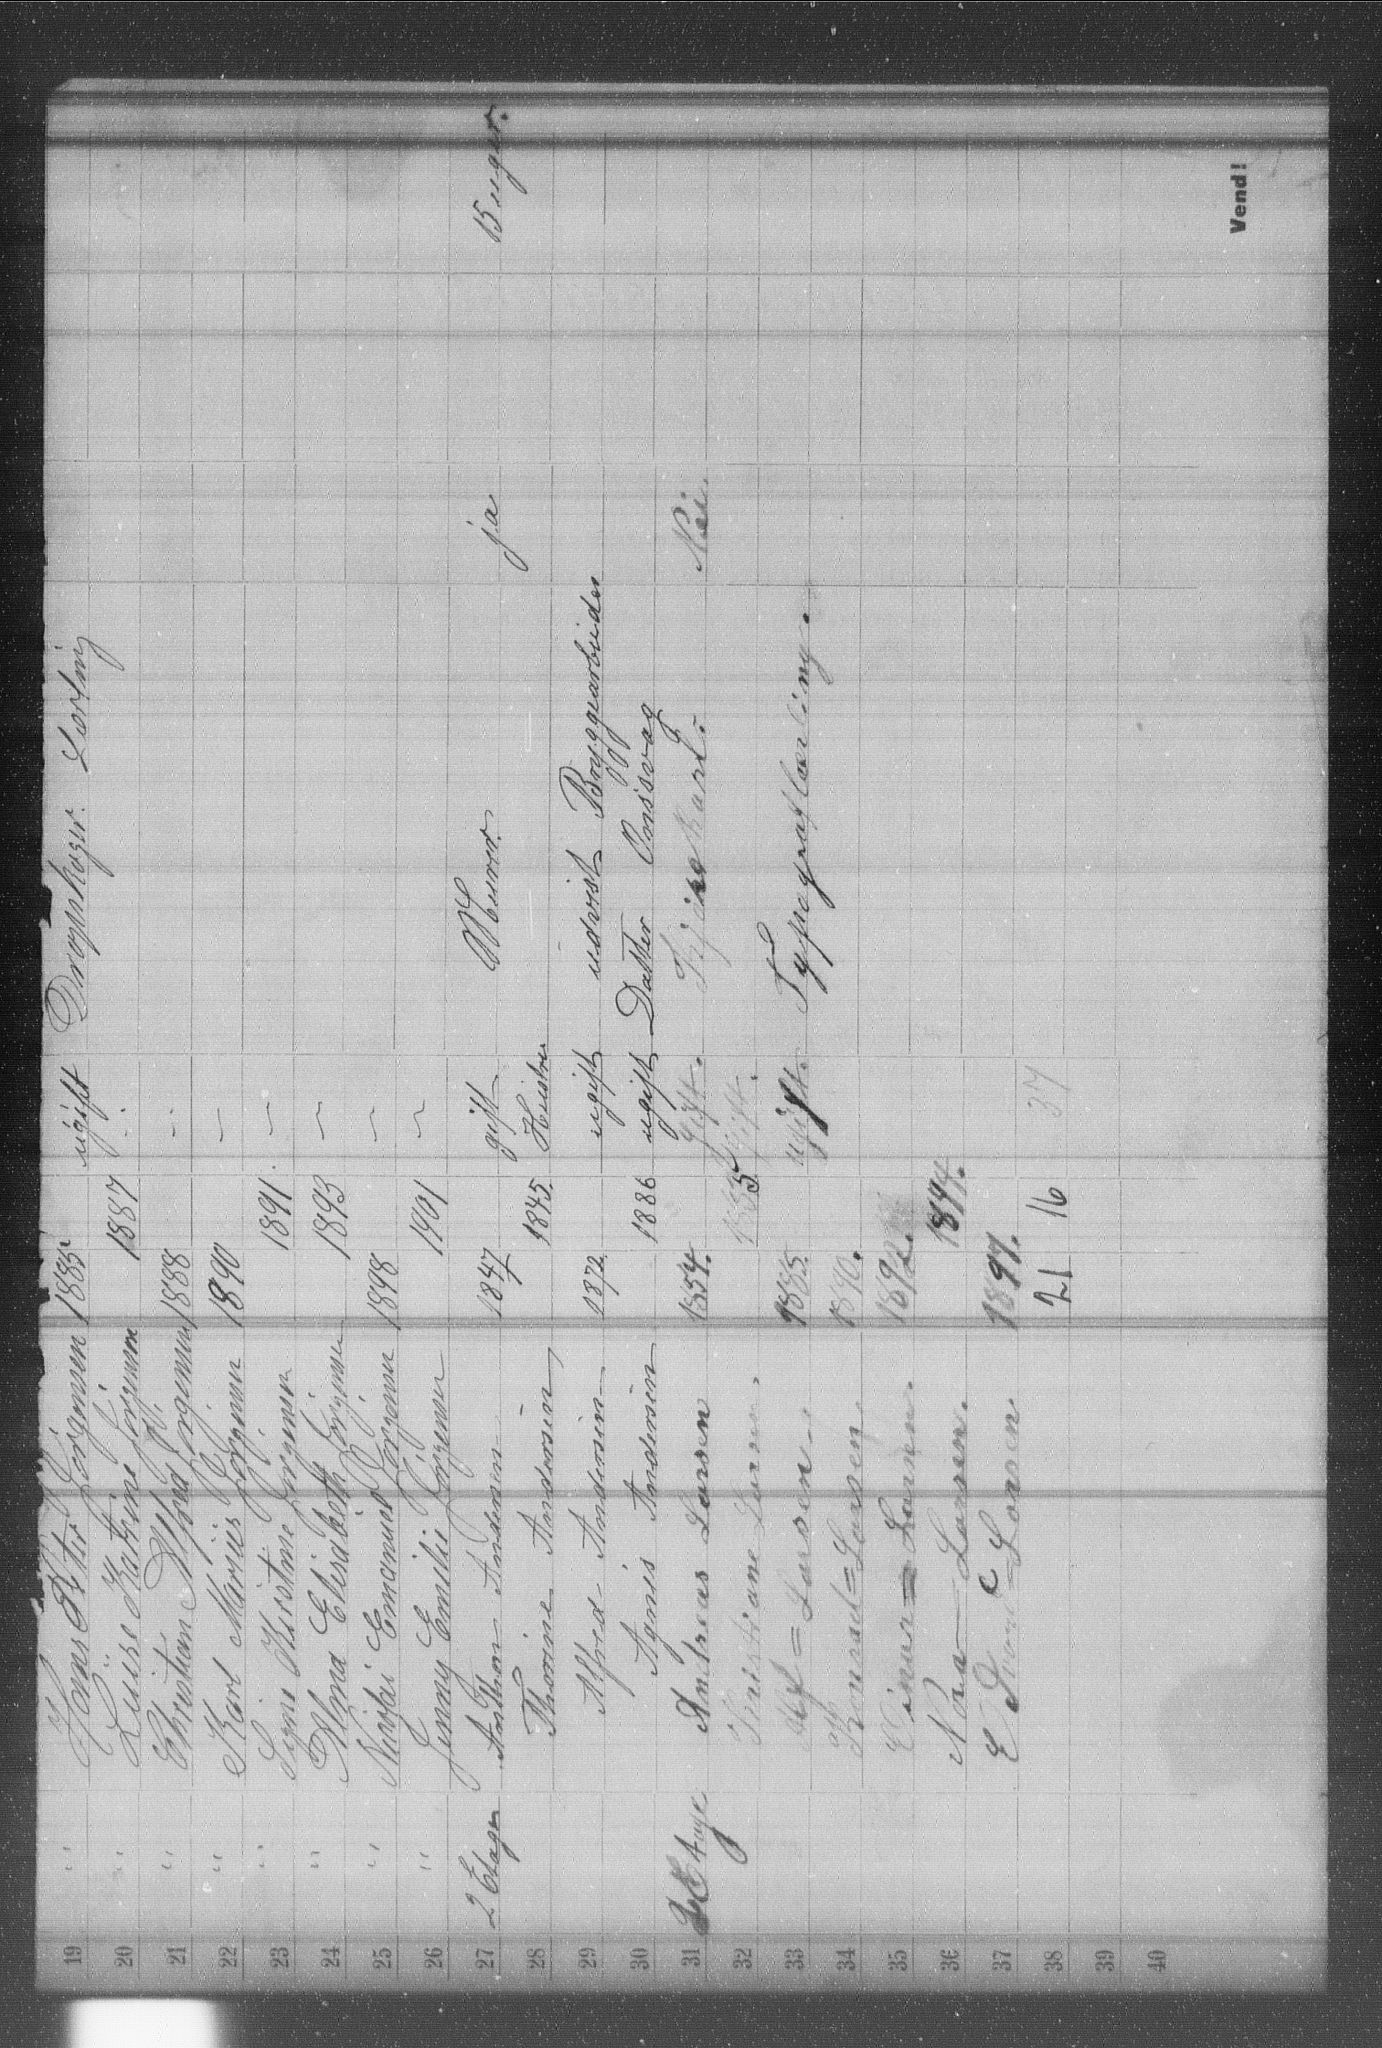 19 " Hans Peter Jörginsen 1885 ugift Drejer
20 " Luise Katrine Jörginsen 1887 "
21 " Christian Alfred Jörgensen 1888 "
22 " Karl Marius Jörginsen 1890 "
23 " Signe Kristine Jörgensen 1891 "
24 " Alma Elisabeth Jörginsen 1893 "
25 " Nicolai Emanuel Jörginsen 1898 "
26 " Jenny Emilie Jörgensen 1901 "
27 2 Etage Anthon Andersen 1847 gift Murer ja 15 uger.
28 Thorine Andersen 1845. Hustru
29 Alfred Andersin 1872 ugift Bryggearbeider
30 Agnis Andersin 1886 ugift Datter
31 2 Etage Andreas Larsen 1854. Gift. Nei.
32 Kristiane Larsen. 1855 Gift.
33 Larsen. 1885 ugift. Typograflærling.
34 Konrad = Larsen. 1890.
35 Einar = Larsen. 1892.
36 Nora Larsen. 1894.
37 Larsen 1897.
38 21 16 37
39
40
Vend!